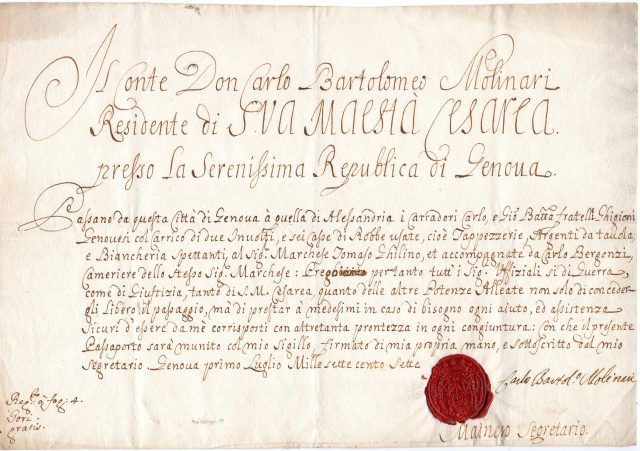 Il Conte Don Carlo Bartolomeo Molinari
Residente di SUA MAESTÀ CESAREA.
presso La Serenissima Republica di Genova.
Passano da questa Città di Genova à quella di Alessandria i Carradori Carlo, e Gio Batta fratelli Ghigioni
Genovesi col carrico di due Involti, e sei Casse di Robbe usate, cioè Tappezzerie, Argenti da tavola,
e Biancheria Spettanti, al Sig. Marchese Tomaso Ghilino, et accompagnate da Carlo Bergonzi
Cameriere dello Stesso Sig. Marchese: per tanto tutti i Sig. Uffiziali si di Guerra,
come di Giustizia, tanto di S. M. Cesarea, quanto delle altre Potenze Alleate non solo di conceder
gli Libero il passaggio, mà di prestar à medesimi in caso di bisogno ogni aiuto, ed assistenza
Sicuri d'essere da mè corrisposti con altretanta prontezza in ogni congiuntura: Con che il presente
Passaporto sarà munito col mio Sigillo, firmato di mia propria mano, e sottoscritto dal mio
segretario. Genova primo Luglio Mille sette cento sette
Carlo Bartol.o Molinari
à fog: 4.
gratis.
Segretario.